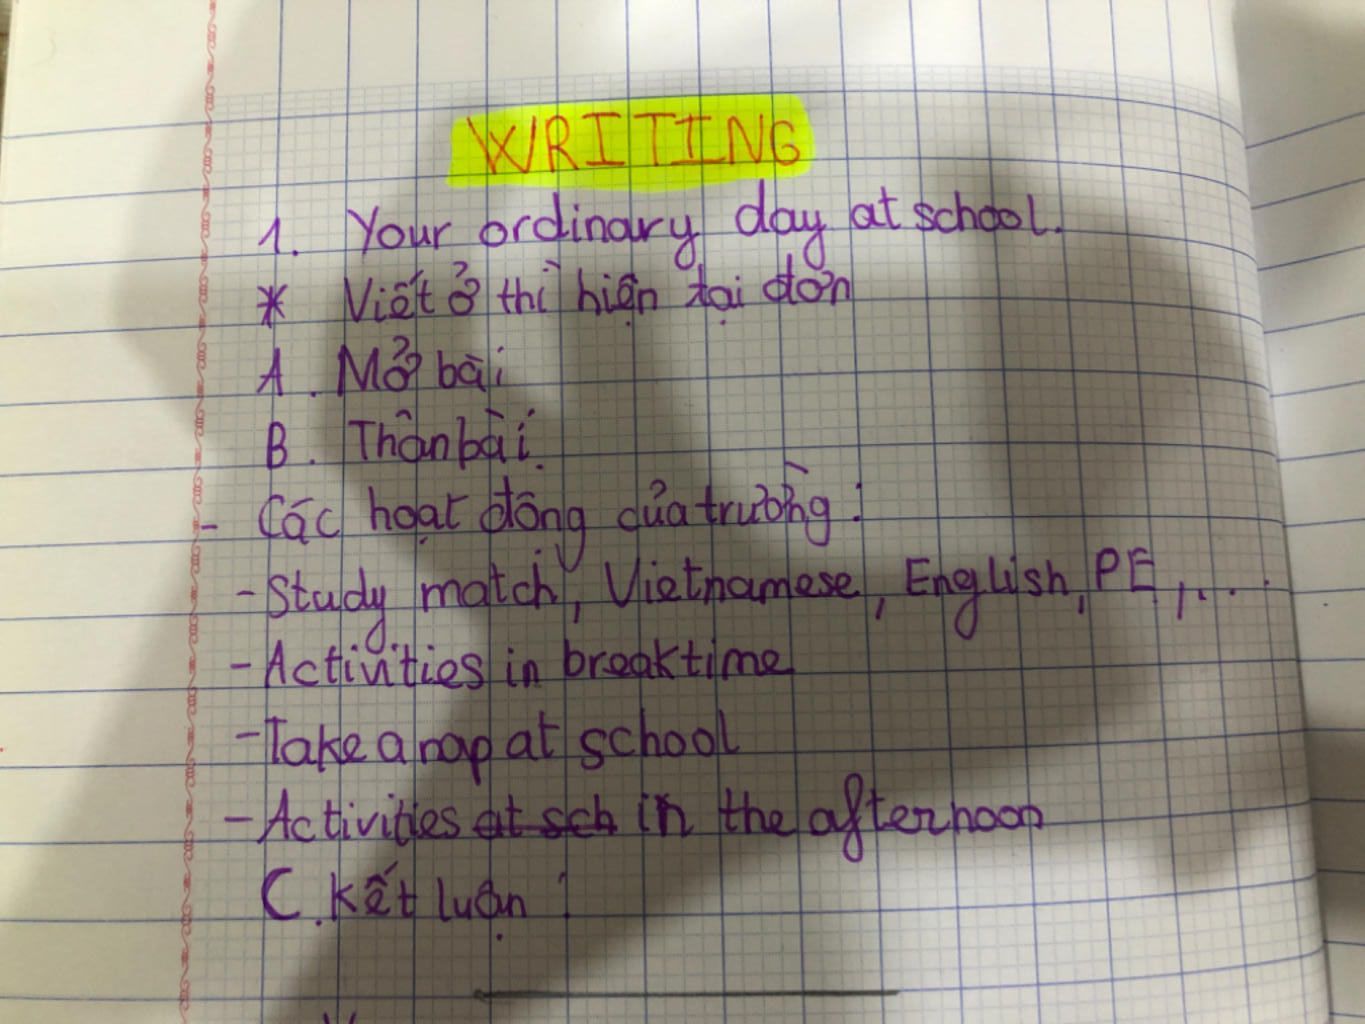 WRITING
1. Your ordinary day at school.
* Viết ở thì hiện tại đơn
A. Mở bài
B. Thân bài.
- Các hoạt động của trường:
- Study match, Vietnamese, English, PE, ...
- Activities in breaktime
- Take a nap at school
- Activities at sch in the afternoon
C. Kết luận: